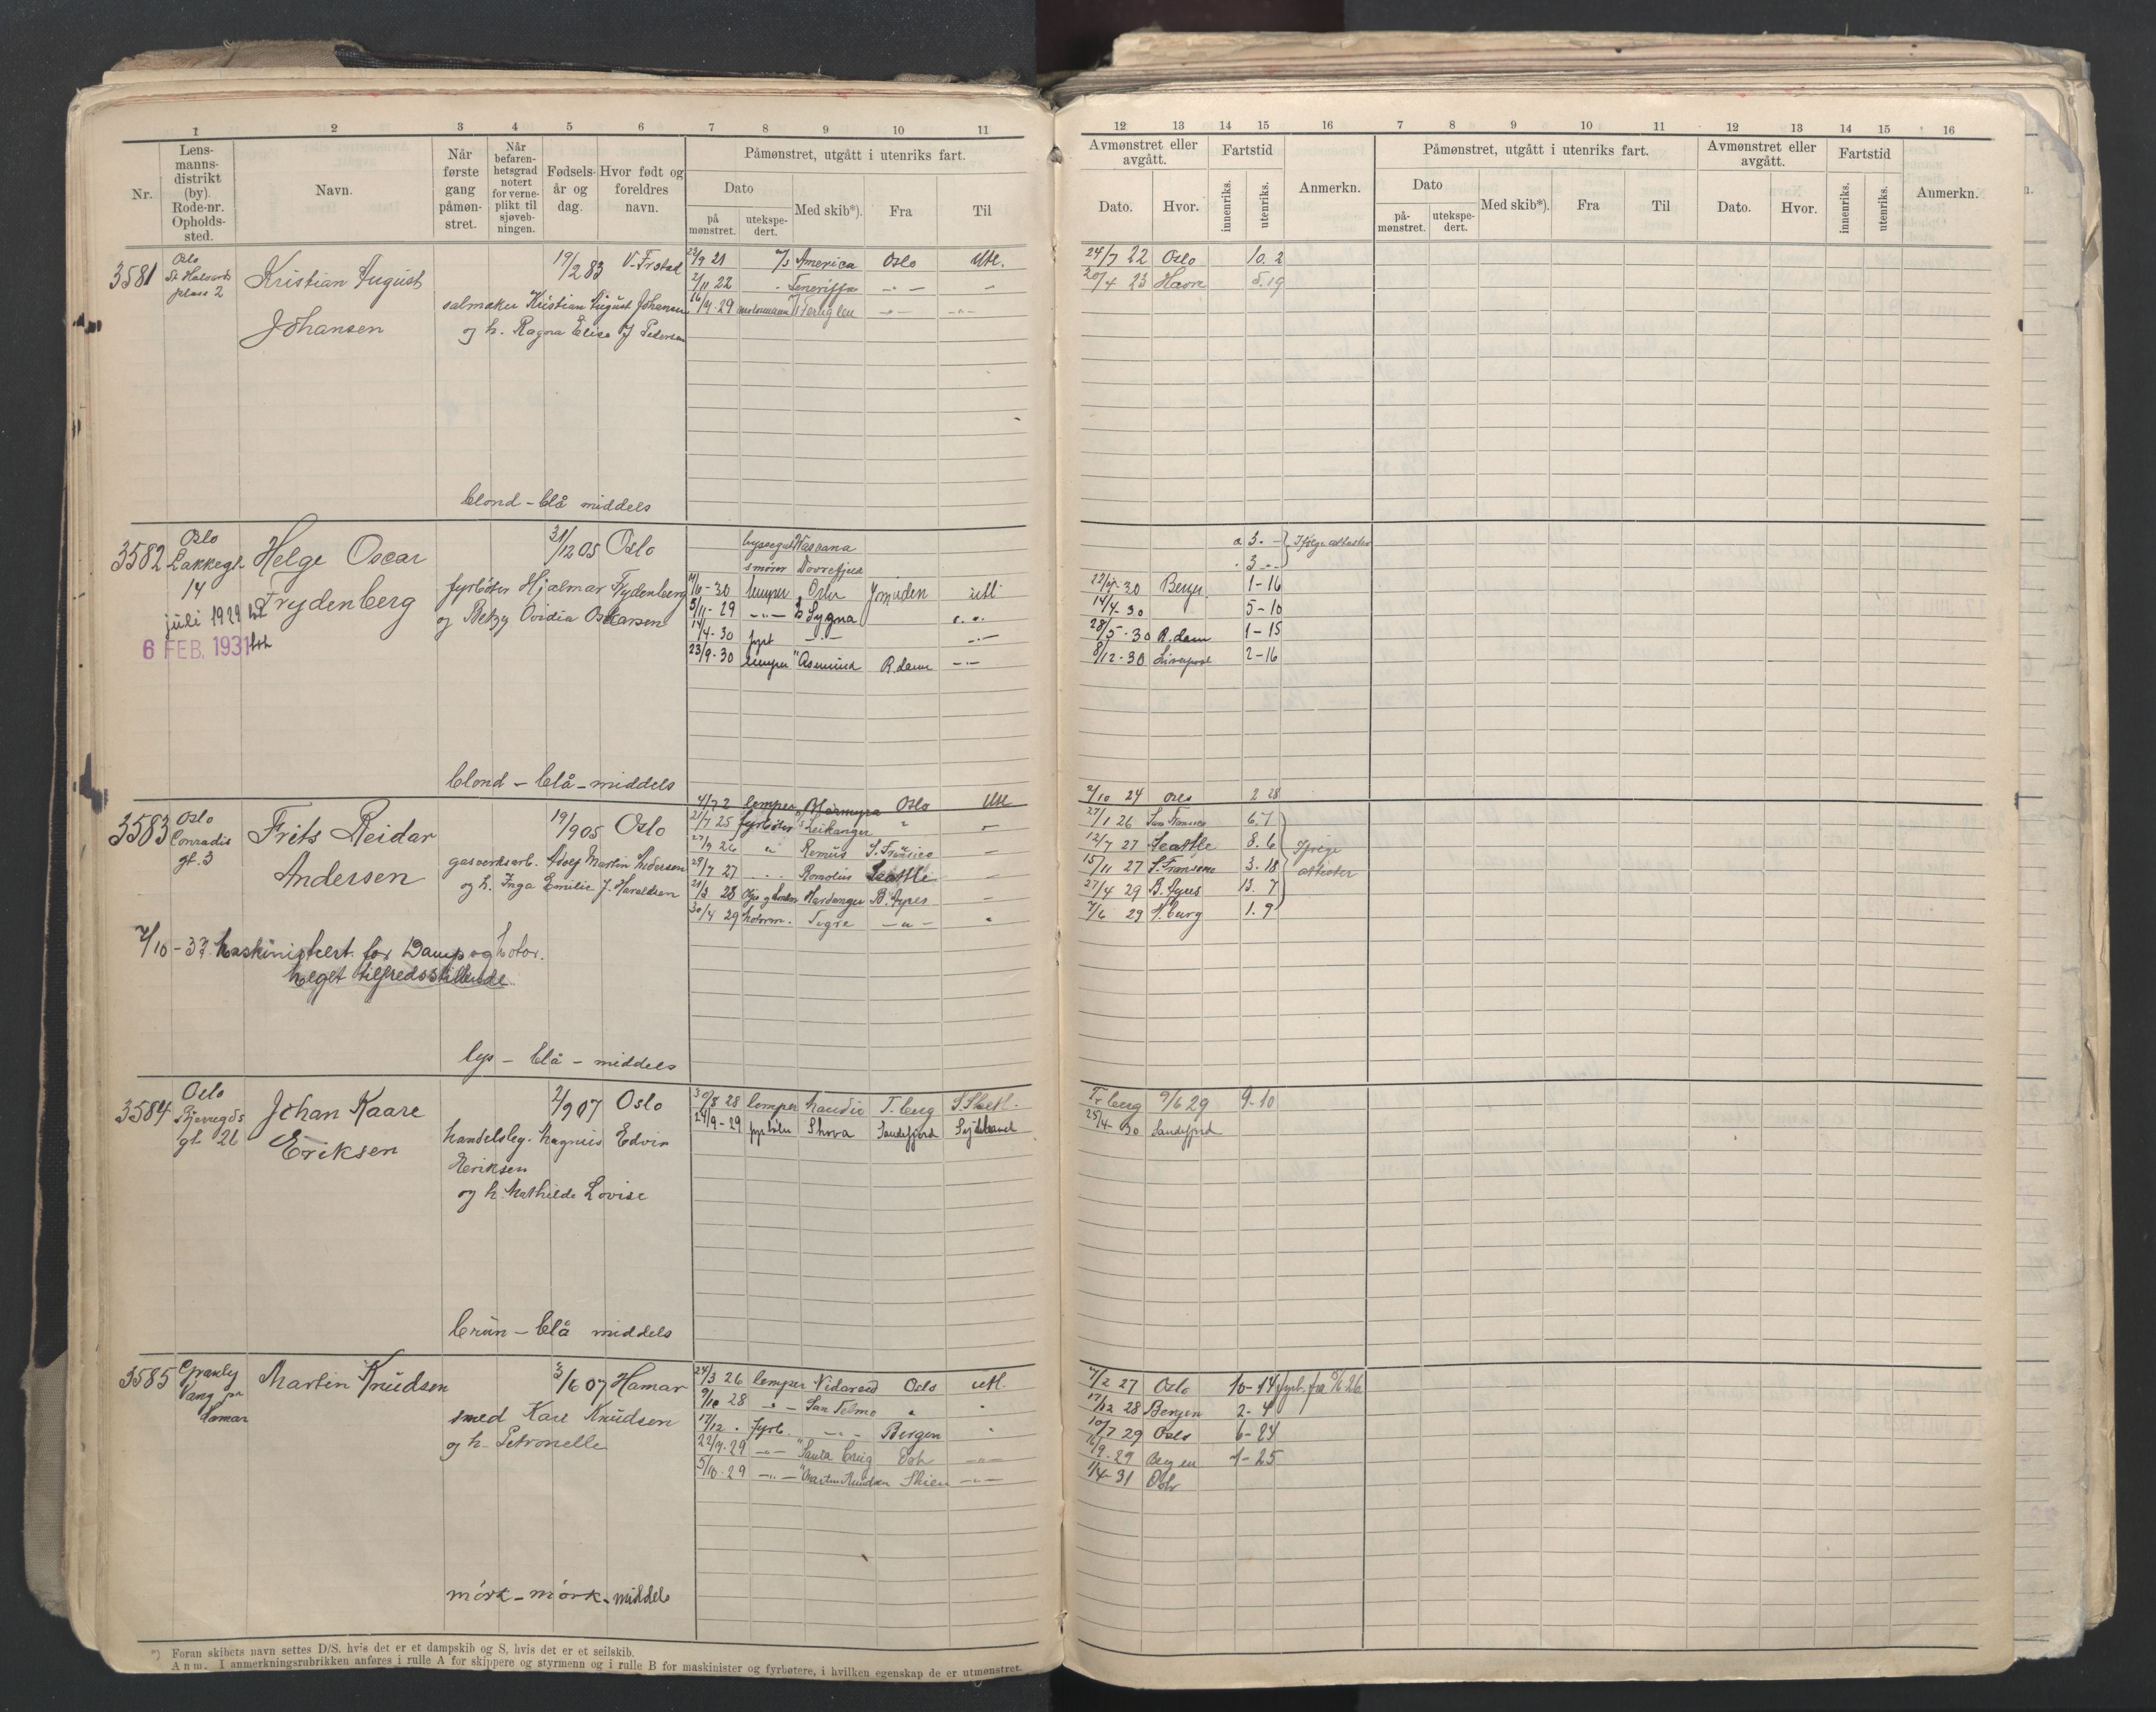 1 2 3 4 5 6 7 8 9 10 11
Nr.
Lens-
manns-
distrikt
(by).
Rode-nr.
Opholds-
sted.
Navn.
Når
første
gang
påmøn-
stret.
Når
befaren-
hetsgrad
notert
for verne-
plikt til
sjøveb-
ningen.
Fødsels-
år og
dag.
Hvor født og
foreldres
navn.
Påmønstret, utgått i utenriks fart.
Dato
på
mønstret.
utekspe-
dert.
Med skib*).
Fra
Til
12 13 14 15 16 7 8 9 10 11 12 13 14 15 16
Avmønstret eller
avgått.
Dato. Hvor.
Fartstid
innenriks. utenriks.
Anmerkn.
Påmønstret, utgått i utenriks fart.
Dato
på-
mønstret.
utekspe-
dert.
Med skib*).
Fra
Til
Avmønstret eller
avgått.
Dato. Hvor.
Fartstid
innenriks. utenriks.
Anmerkn.
3581 Oslo
St Halvards
plass 2
Kristian August
Johansen
19/2 83 V. Frstad
salmaker Kristian August Johansen
og h. Ragna Elise J Pedersen
23/9 21 America Oslo Utl. 24/7 22 Oslo 10. 2
2/11 22 Teneriffa 20/4 23 Havre 5. 19
16/4 - 29 motormann
blond - blå middels
3582 Oslo
Lakkegt.
14
juli 1929
6 FEB. 1931
Helge Oscar
Frydenberg
31/12 05 Oslo
fyrbøter Hjalmar Frydenberg
og Betzy Ovidia Oskarsen
byssegut
smører Dovrefjell
Ifølge attester
- 30 lemper Oslo Ymuiden utl - 30 1 - 16
5/11 - 29 Sygna 14/4 - 30 5 - 10
14/4 - 30 fyrb 28/5 - 30 R.dam 1 - 15
23/9 - 30 lemper R.dam 8/12 - 30 Liverpool 2 - 16
blond - blå - middels
3583 Oslo
Conradis
gt. 3
Frits Reidar
Andersen
19/9 05 Oslo
gasverksarb. Martin Andersen
og h. Inga Emilie J. Haraldsen
lemper Bjørmyra Oslo Utl 2/10 24 Oslo 2 28
21/7 25 fyrbøter Leikanger 27/1 26 San Francisco 6. 7
27/9 26 Remus S. Francisco 12/7 27 Seattle 8. 6
29/7 27 Romolus Seattle 15/11 27 S. Francisco 3. 18
21/3 28 Hardanger B. Ayres 27/4 29 B. Ayres 13. 7
30/4 29 Motorm. Tigre 7/6 29 1. 9
Ifølge
attester
2/10 - 37. Maskinistcert. for Damp og Motor.
Meget tilfredsstillende
lys - blå - middels
3584 Oslo
Bjerregds
gt. 26
Johan Kaare
Eriksen
2/9 07 Oslo
handelsbeg. Magnus Edvin
Eriksen
og h. Mathilde Lovise
30/8 28 lemper Maudie T. berg S. Shetl. Tr berg 9/6 29 9 - 10
24/9 - 29 fyrbøter Sandefjord 25/4 - 30 Sandefjord
brun - blå middels
3585 Granly
Vang pr
Hamar
Martin Knudsen
3/6 07 Hamar
smed Kare Knudsen
og h. Petronelle
24/3 26 lemper Nidareid Oslo utl. 4/2 27 Oslo 10 - 14 fyrb. fra 26
9/10 28 San Telmo 17/12 28 Bergen 2 - 4
17/12 fyrb. Bergen 10/7 29 Oslo 6 - 24
22/9 - 29 Santa Cruz Oslo 29 Bergen 1 - 25
5/10 - 29 Skien 1/4 - 31 Oslo
mörk - mörk - middels
*) Foran skibets navn settes D/S. hvis det er et dampskib og S, hvis det er et seilskib.
Anm. I anmerkningsrubrikken anføres i rulle A for skippere og styrmenn og i rulle B for maskinister og fyrbøtere, i hvilken egenskap de er utmønstret.